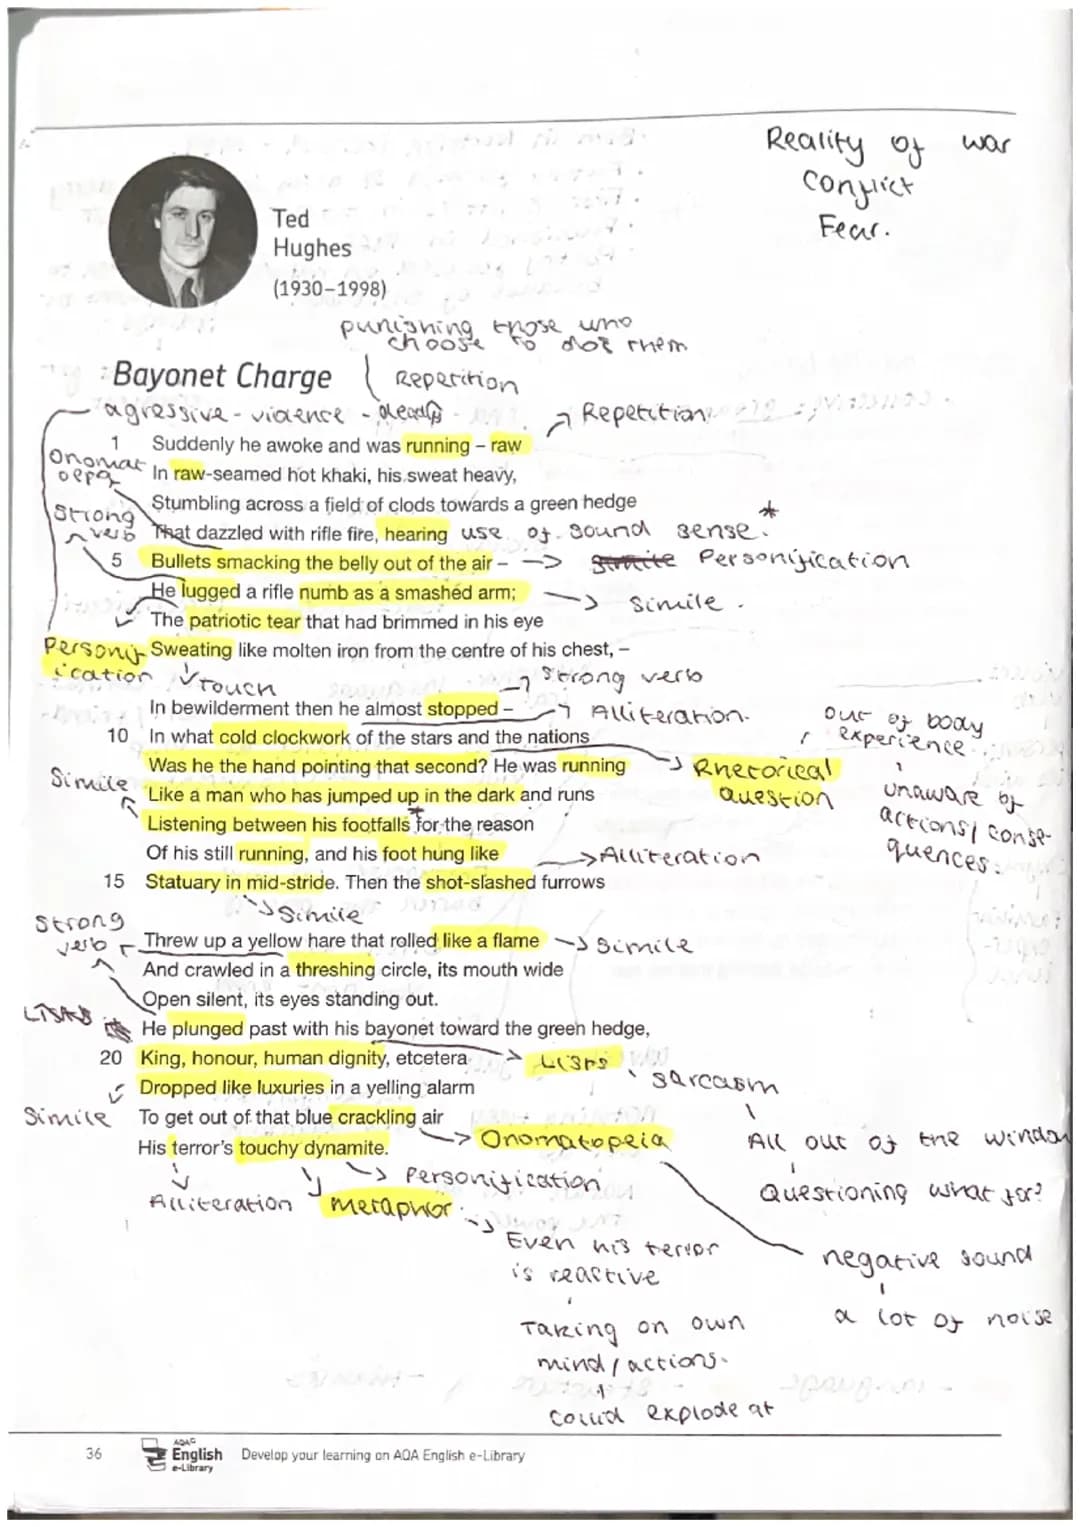 Reality of war
Conflict
Fear.
Ted
Hughes
(1930–1998)
punishing those who
choose to not them
Bayonet Charge
Repetition
agressive - violence - deadly
Repetition
1 Suddenly he awoke and was running – raw
Onomat
oepa
In raw-seamed hot khaki, his sweat heavy,
Stumbling across a field of clods towards a green hedge
Strong
verb
That dazzled with rifle fire, hearing use of sound sense.*
5 Bullets smacking the belly out of the air – Personification
He lugged a rifle numb as a smashed arm; Simile.
The patriotic tear that had brimmed in his eye
Personif
ication
Sweating like molten iron from the centre of his chest, –
touch
Strong verb
In bewilderment then he almost stopped – Alliteration.
10 In what cold clockwork of the stars and the nations
Was he the hand pointing that second? He was running
Rhetorical
question
out of body
experience
unaware of
actions/ conse-
quences.
Simile
Like a man who has jumped up in the dark and runs
Listening between his footfalls* for the reason
Of his still running, and his foot hung like
Alliteration
15 Statuary in mid-stride. Then the shot-slashed furrows
Simile
Strong
verb
Threw up a yellow hare that rolled like a flame Simile
And crawled in a threshing circle, its mouth wide
Open silent, its eyes standing out.
Lists
He plunged past with his bayonet toward the green hedge,
20 King, honour, human dignity, etcetera Lists
sarcasm
Dropped like luxuries in a yelling alarm
Simile
To get out of that blue crackling air
Onomatopeia
His terror's touchy dynamite.
All out of the window
Questioning what for?
Alliteration
Personification
Metaphor
Even his terror
is reactive
Taking on own
mind/actions.
Could explode at
negative sound
a lot of noise
36
AQA
English
e-Library
Develop your learning on AQA English e-Library